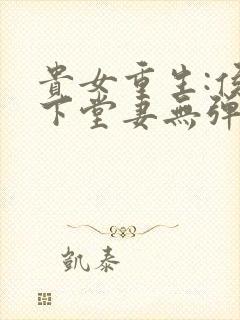 貴女重生:侯
下堂妻無彈
凱泰